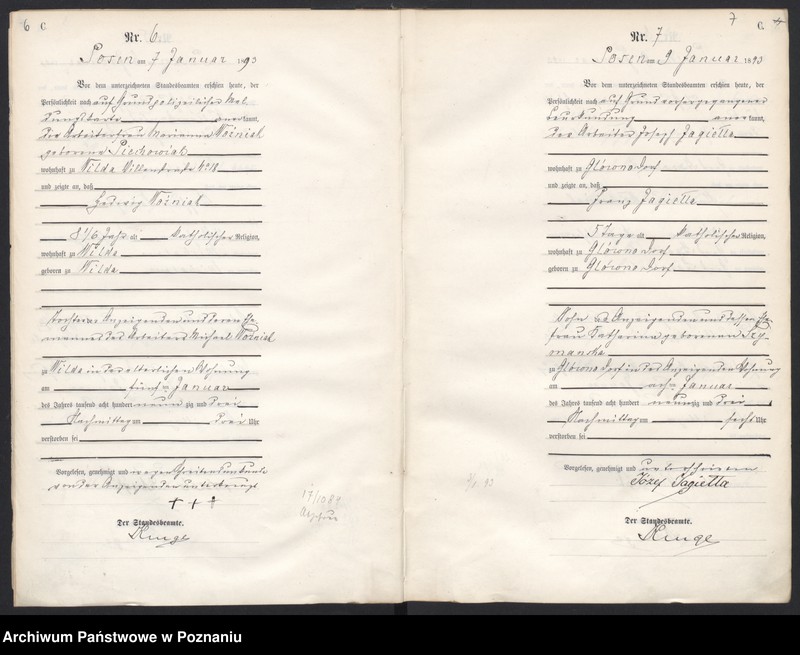 6 C.
Nr. 6
Posen am 7 Januar 1893
Vor dem unterzeichneten Standesbeamten erschien heute, der
Persönlichkeit nach auf Grund polizeilicher Mel
dungskarte anerkannt,
die Arbeiterfrau Marianna Wozniak
geborene Piechowiak
wohnhaft zu Wilda
und zeigte an, daß
Hedwig Wozniak
8 1/6 Jahr alt katholischer Religion,
wohnhaft zu Wilda
geboren zu Wilda
Tochter der Anzeigenden und deren Ehe
mannes des Arbeiters Michael Wozniak
zu Wilda in der elterlichen Wohnung
am fünf Januar
des Jahrs tausend acht hundert neunzig und drei
Nachmittag um drei Uhr
verstorben sei
Vorgelesen, genehmigt und wegen Schreibensunkunde
von der Anzeigenden unterkreuzt
+ + +
Der Standesbeamte.
7 C.
Nr. 7
Posen am 9 Januar 1893
Vor dem unterzeichneten Standesbeamten erschien heute, der
Persönlichkeit nach auf Grund vorhergegangener
Beurkundung anerkannt,
der Arbeiter Joseph Jagiella
wohnhaft zu Glowno Dorf
und zeigte an, daß
Franz Jagiella
5 Tage alt katholischer Religion,
wohnhaft zu Glowno Dorf
geboren zu Glowno Dorf
Sohn des Anzeigenden und dessen Ehe
frau Katharina geborenen Szy
manska
zu Glowno Dorf in des Anzeigenden Wohnung
am acht Januar
des Jahrs tausend acht hundert neunzig und drei
Nachmittag um sechs Uhr
verstorben sei
Vorgelesen, genehmigt und unterschrieben
Józef Jagiella
Der Standesbeamte.
Archiwum Państwowe w Poznaniu